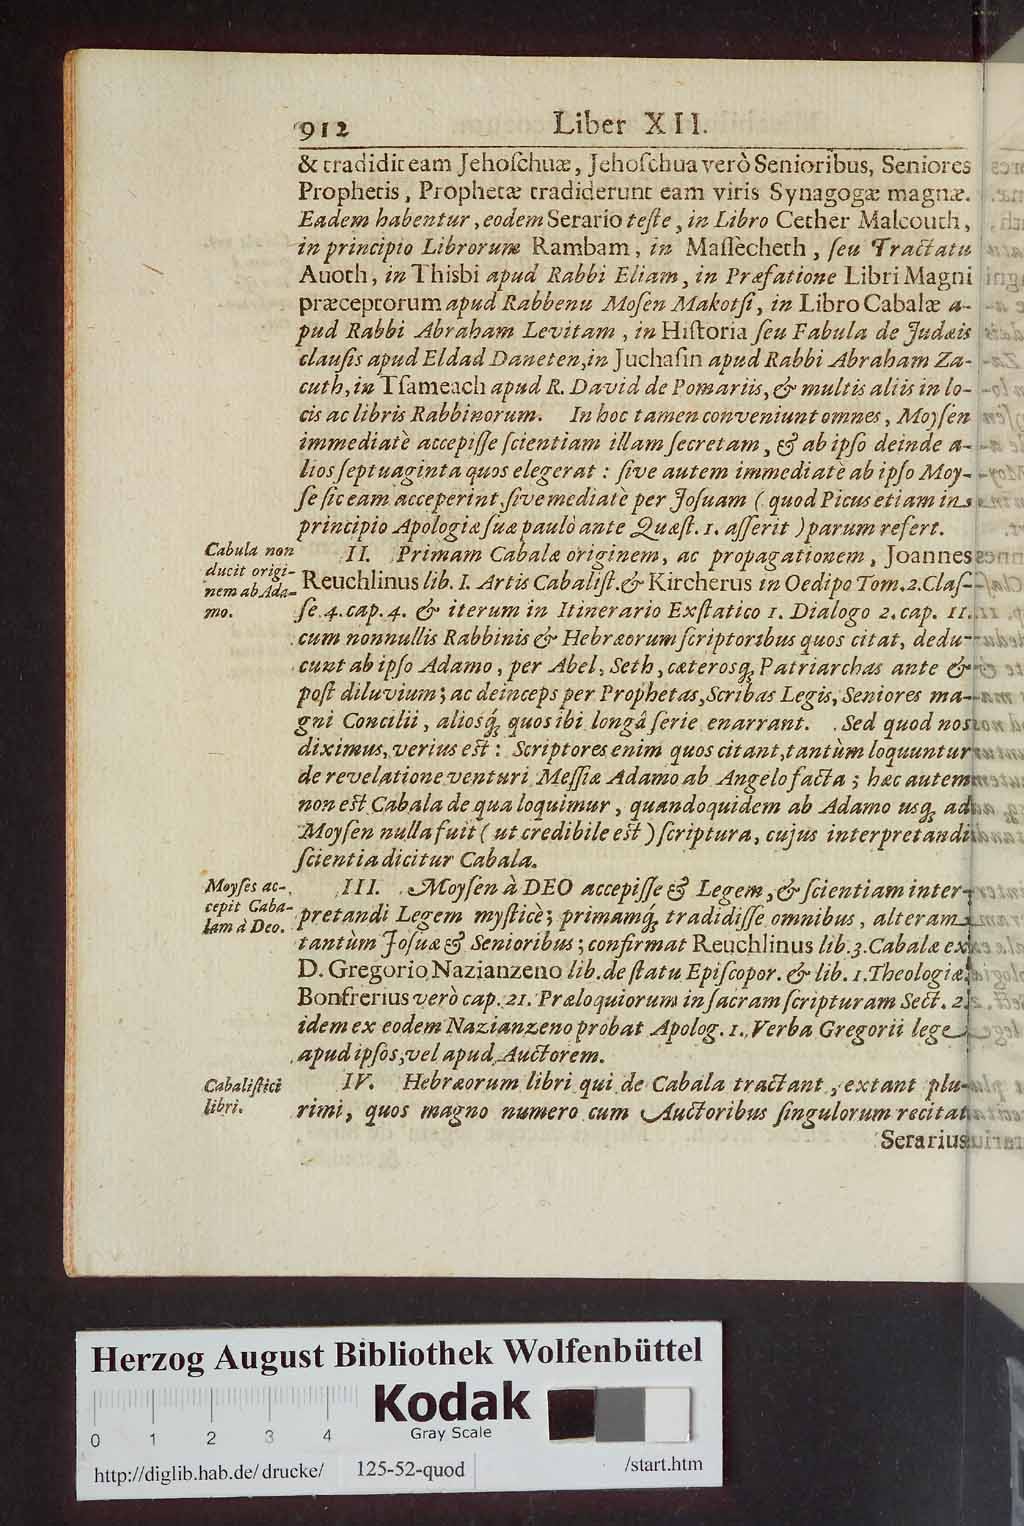 912 Liber XII.
& tradidit eam Jehoſchuæ, Jehoſchua verò Senioribus, Seniores
Prophetis, Prophetæ tradiderunt eam viris Synagogæ magnæ.
Eadem habentur, eodem Serario teſte, in Libro Cether Malcouth,
in principio Librorum Rambam, in Maſſecheth, ſeu Tractatu
Auoth, in Thisbi apud Rabbi Eliam, in Præfatione Libri Magni
præceptorum apud Rabbenu Moſen Makotſi, in Libro Cabalæ a-
pud Rabbi Abraham Levitam, in Hiſtoria ſeu Fabula de Judæis
clauſis apud Eldad Daneten, in Juchaſin apud Rabbi Abraham Za-
cuth, in Tſameach apud R. David de Pomariis, & multis aliis in lo-
cis ac libris Rabbinorum. In hoc tamen conveniunt omnes, Moyſen
immediatè accepiſſe ſcientiam illam ſecretam, & ab ipſo deinde a-
lios ſeptuaginta quos elegerat: ſive autem immediatè ab ipſo Moy-
ſe ſic eam acceperint, ſive mediatè per Joſuam (quod Picus etiam in
principio Apologiæ ſuæ paulò ante Quæſt. 1. aſſerit) parum refert.
Cabula non
ducit origi-
nem ab Ada-
mo.
II. Primam Cabalæ originem, ac propagationem, Joannes
Reuchlinus lib. I. Artis Cabaliſt. & Kircherus in Oedipo Tom. 2. Claſ-
ſe 4. cap. 4. & iterum in Itinerario Exſtatico 1. Dialogo 2. cap. 11.
cum nonnullis Rabbinis & Hebræorum ſcriptoribus quos citat, dedu-
cunt ab ipſo Adamo, per Abel, Seth, cæterosq; Patriarchas ante &
poſt diluvium; ac deinceps per Prophetas, Scribas Legis, Seniores ma-
gni Concilii, aliosq́; quos ibi longâ ſerie enarrant. Sed quod nos
diximus, verius eſt: Scriptores enim quos citant, tantùm loquuntur
de revelatione venturi Meſſiæ Adamo ab Angelo facta; hæc autem
non eſt Cabala de qua loquimur, quandoquidem ab Adamo usq; ad
Moyſen nulla fuit (ut credibile eſt) ſcriptura, cujus interpretandi
ſcientia dicitur Cabala.
Moyſes ac-
cepit Caba-
lam à Deo.
III. Moyſen à DEO accepiſſe & Legem, & ſcientiam inter-
pretandi Legem myſticè; primamq́; tradidiſſe omnibus, alteram
tantùm Joſuæ & Senioribus; confirmat Reuchlinus lib. 3. Cabalæ ex
D. Gregorio Nazianzeno lib. de ſtatu Epiſcopor. & lib. 1. Theologiæ.
Bonfrerius verò cap. 21. Præloquiorum in ſacram ſcripturam Sect. 2.
idem ex eodem Nazianzeno probat Apolog. 1. Verba Gregorii lege
apud ipſos, vel apud Auctorem.
Cabaliſtici
libri.
IV. Hebræorum libri qui de Cabala tractant, extant plu-
rimi, quos magno numero cum Auctoribus ſingulorum recitat
Serarius
Herzog August Bibliothek Wolfenbüttel
Kodak
Gray Scale
0 1 2 3 4
http://diglib.hab.de/drucke/ 125-52-quod /start.htm